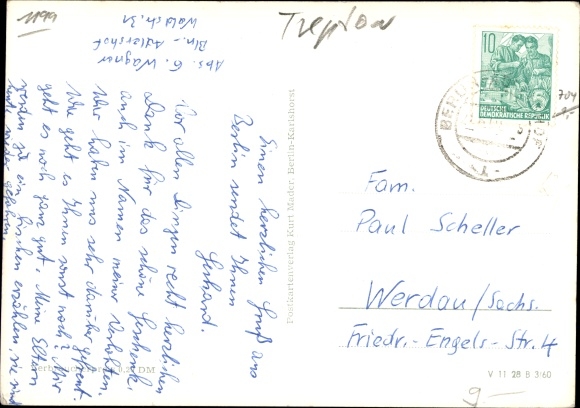 1199
Treptow
Abs. G. Wagner
Bln.-Adlershof
Waldstr. 31
10
DEUTSCHE
DEMOKRATISCHE REPUBLIK
704
Einen herzlichen Gruß aus
Berlin sendet Ihnen
Gerhard.
Vor allen Dingen recht herzlichen
Dank für das schöne Geschenk,
auch im Namen meiner Verlobten.
Wir haben uns sehr darüber gefreut.
Wie geht es Ihnen sonst noch? Mir
geht es noch ganz gut. Meine Eltern
werden ja ein bischen erzählen, sie sind
heute wieder gefahren.
Postkartenverlag Kurt Mader, Berlin-Karlshorst
Fam.
Paul Scheller
Werdau/Sachs.
Friedr.-Engels-Str. 4
V 11 28 B 3/60
DM
9-